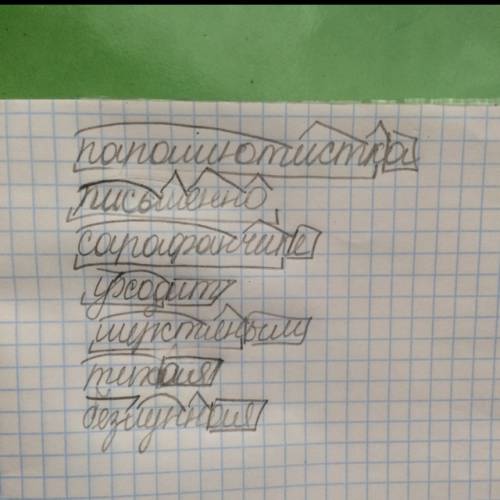 парашютистка
письменно
сарафанчике
уходит
шерстяным
тихая
безлунная